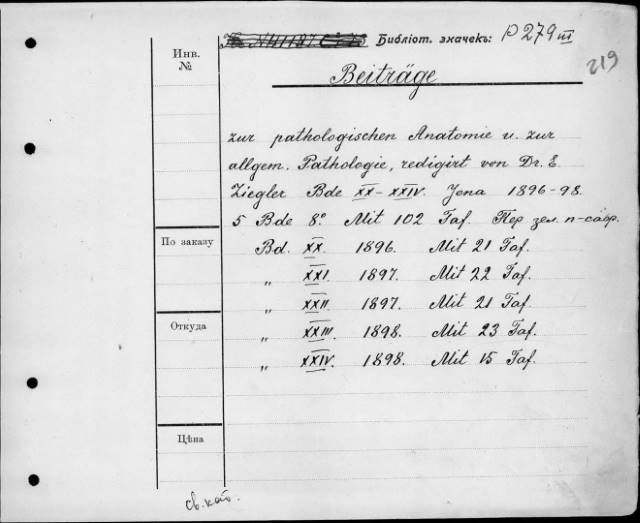 Библіот. значекъ: P 279 III
219
Инв.
№
Beiträge
zur pathologischen Anatomie u. zur
allgem. Pathologie, redigirt von Dr. E.
Ziegler Bde XX-XXIV. Jena 1896-98.
5 Bde 8.° Mit 102 Taf. Пер. зел. п-сафр.
По заказу
Bd. XX. 1896. Mit 21 Taf.
„ XXI. 1897. Mit 22 Taf.
„ XXII. 1897. Mit 21 Taf.
Откуда
„ XXIII. 1898. Mit 23 Taf.
„ XXIV. 1898. Mit 15 Taf.
Цѣна
св. кат.